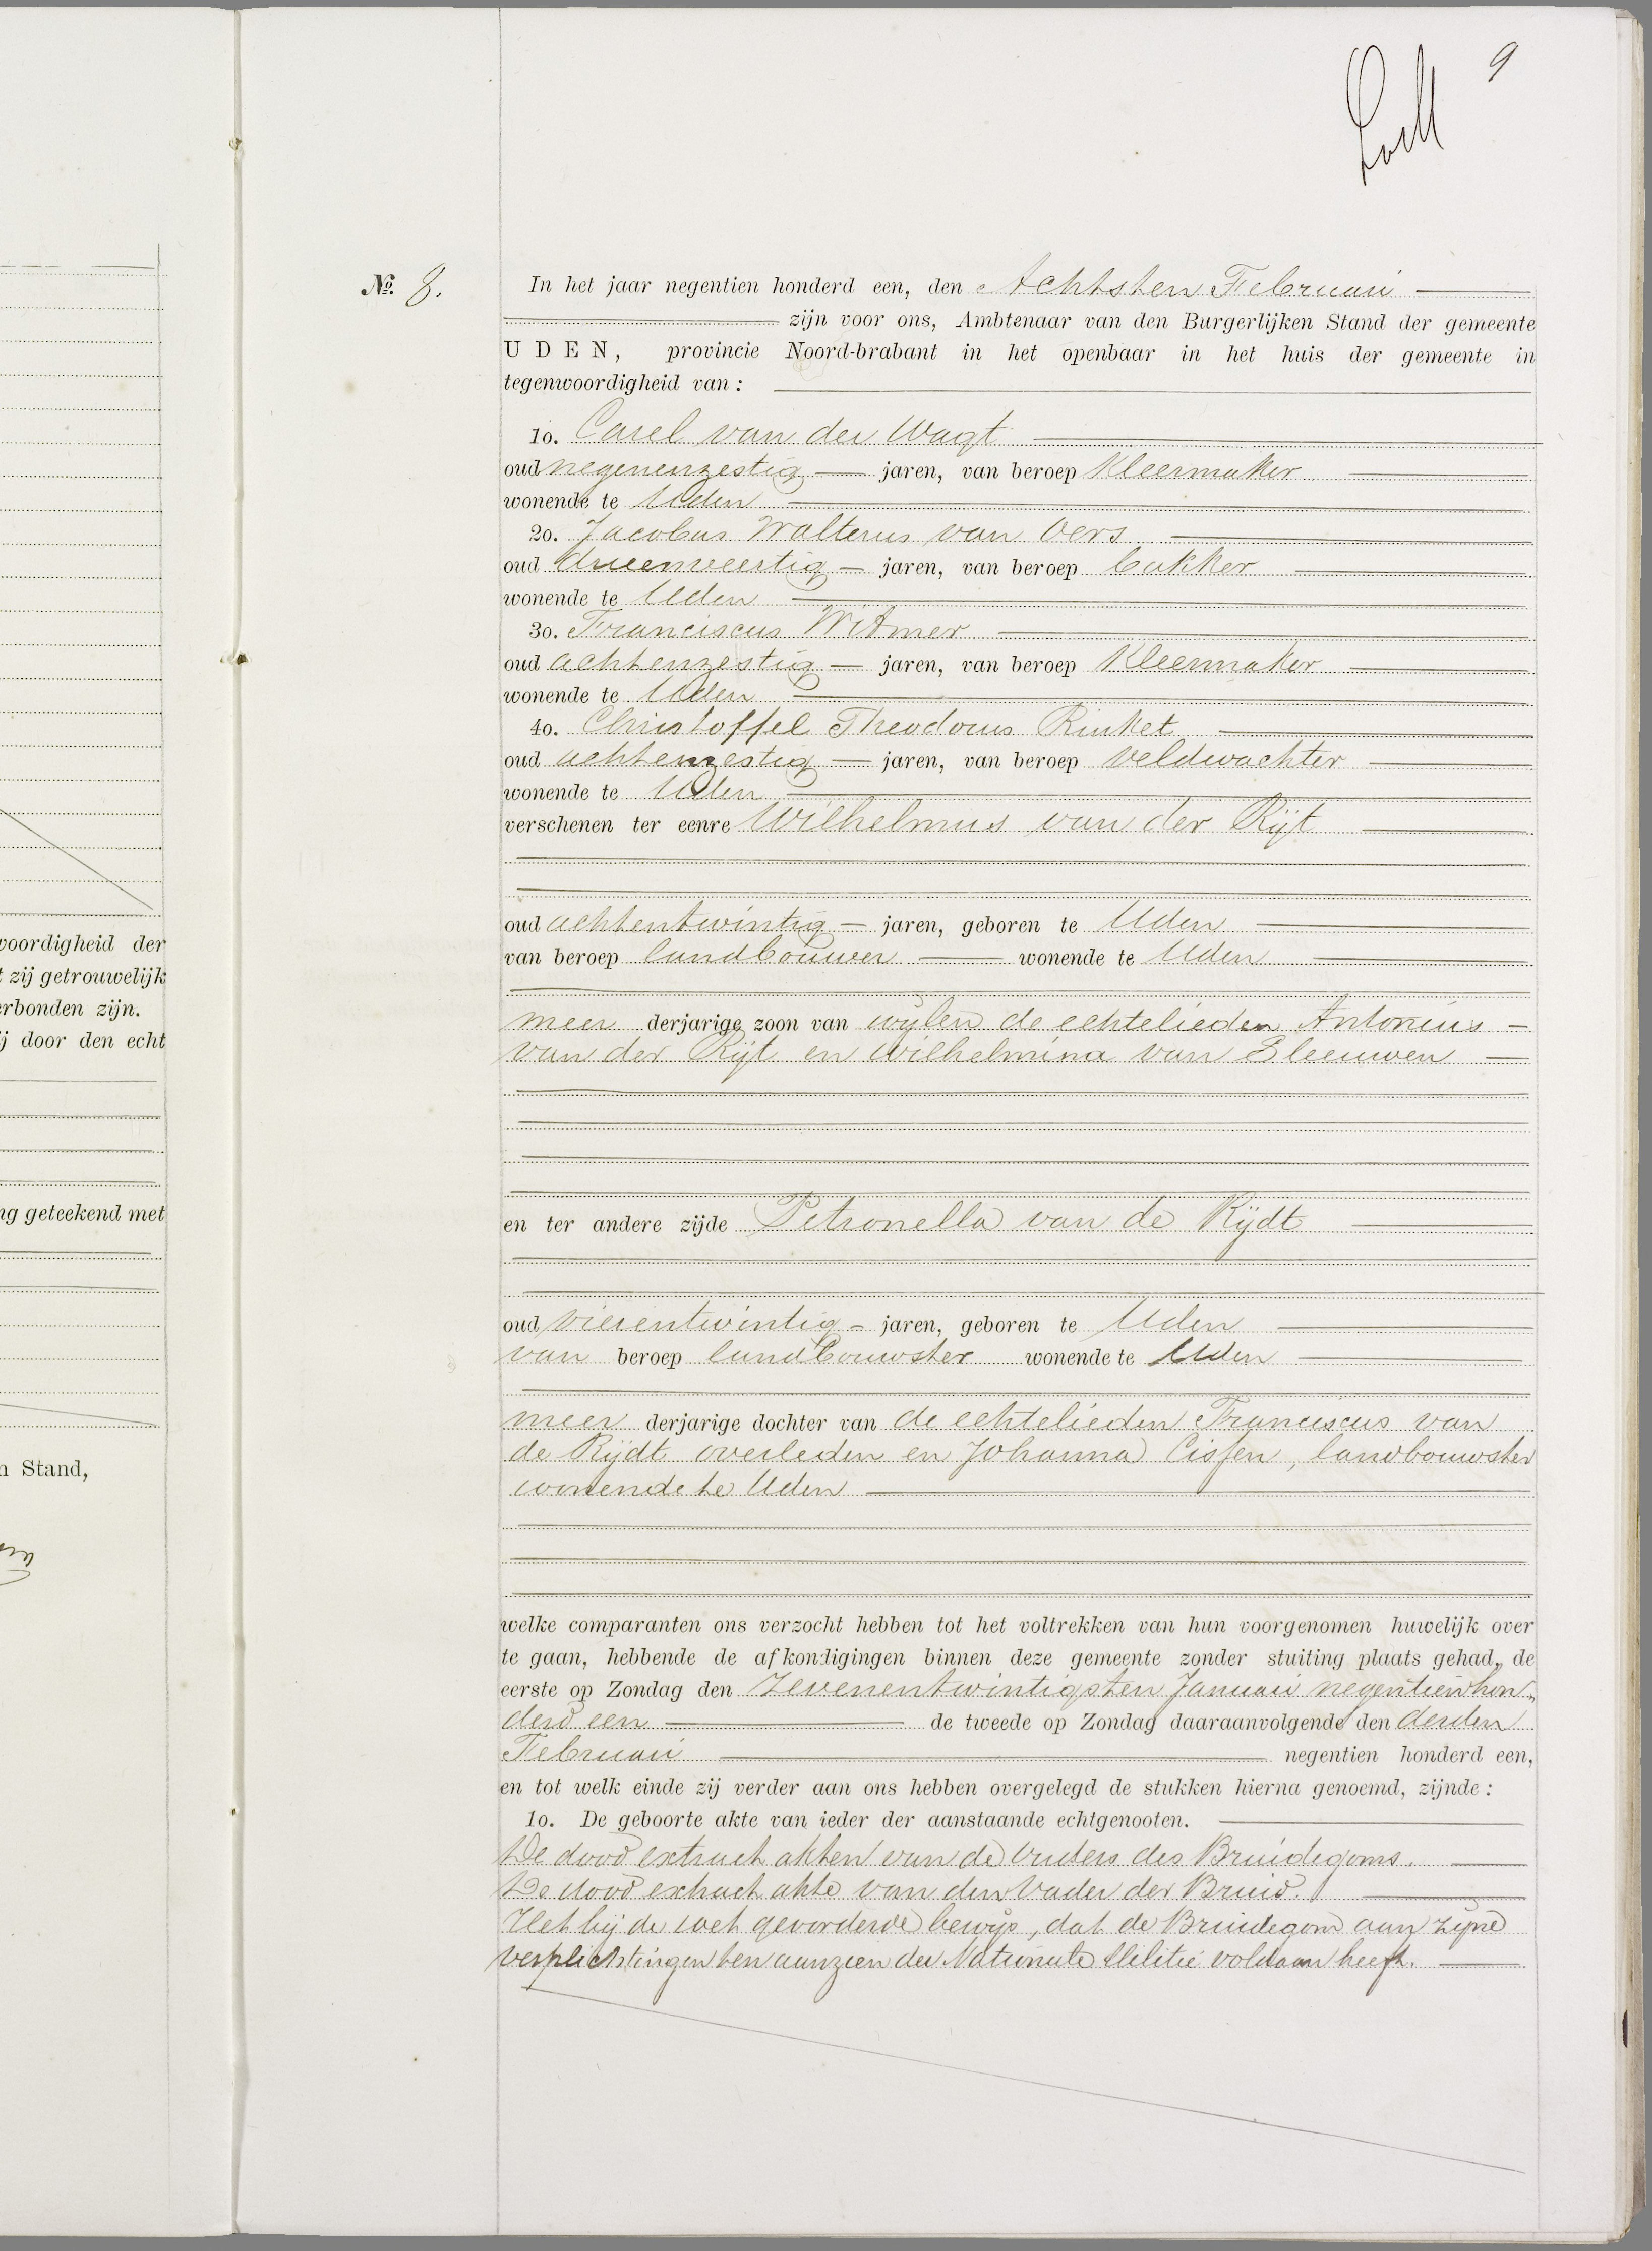 9
voordigheid der
t zij getrouwelijk
erbonden zijn.
j door den echt
ng geteekend met
n Stand,
No. 8.
In het jaar negentien honderd een, den Achtsten Februari
zijn voor ons, Ambtenaar van den Burgerlijken Stand der gemeente
UDEN, provincie Noord-brabant in het openbaar in het huis der gemeente in
tegenwoordigheid van :
1o. Carel van der Wagt
oud negenenzestig jaren, van beroep Kleermaker
wonende te Uden
2o. Jacobus Walterus van Oers
oud drieenveertig jaren, van beroep bakker
wonende te Uden
3o. Franciscus Witmer
oud achtenzestig jaren, van beroep Kleermaker
wonende te Uden
4o. Christoffel Theodorus Rinket
oud achtenzestig jaren, van beroep veldwachter
wonende te Uden
verschenen ter eenre Wilhelmus van der Rijt
oud achtentwintig jaren, geboren te Uden
van beroep landbouwer wonende te Uden
meer derjarige zoon van wijlen de echtelieden Antonius
van der Rijt en Wilhelmina van Sleeuwen
en ter andere zijde Petronella van de Rijdt
oud vierentwintig jaren, geboren te Uden
van beroep landbouwster wonende te Uden
meer derjarige dochter van de echtelieden Franciscus van
de Rijdt overleden en Johanna Cissen, landbouwster
wonende te Uden
welke comparanten ons verzocht hebben tot het voltrekken van hun voorgenomen huwelijk over
te gaan, hebbende de afkondigingen binnen deze gemeente zonder stuiting plaats gehad, de
eerste op Zondag den Zevenentwintigsten Januari negentienhon„
derd een de tweede op Zondag daaraanvolgende den derden
Februari negentien honderd een,
en tot welk einde zij verder aan ons hebben overgelegd de stukken hierna genoemd, zijnde :
1o. De geboorte akte van ieder der aanstaande echtgenooten.
De dood extract akten van de ouders des Bruidegoms.
De dood extract akte van den Vader der Bruid.
Het bij de wet gevorderde bewijs, dat de Bruidegom aan zijne
verplichtingen ten aanzien der Nationale Militie voldaan heeft.